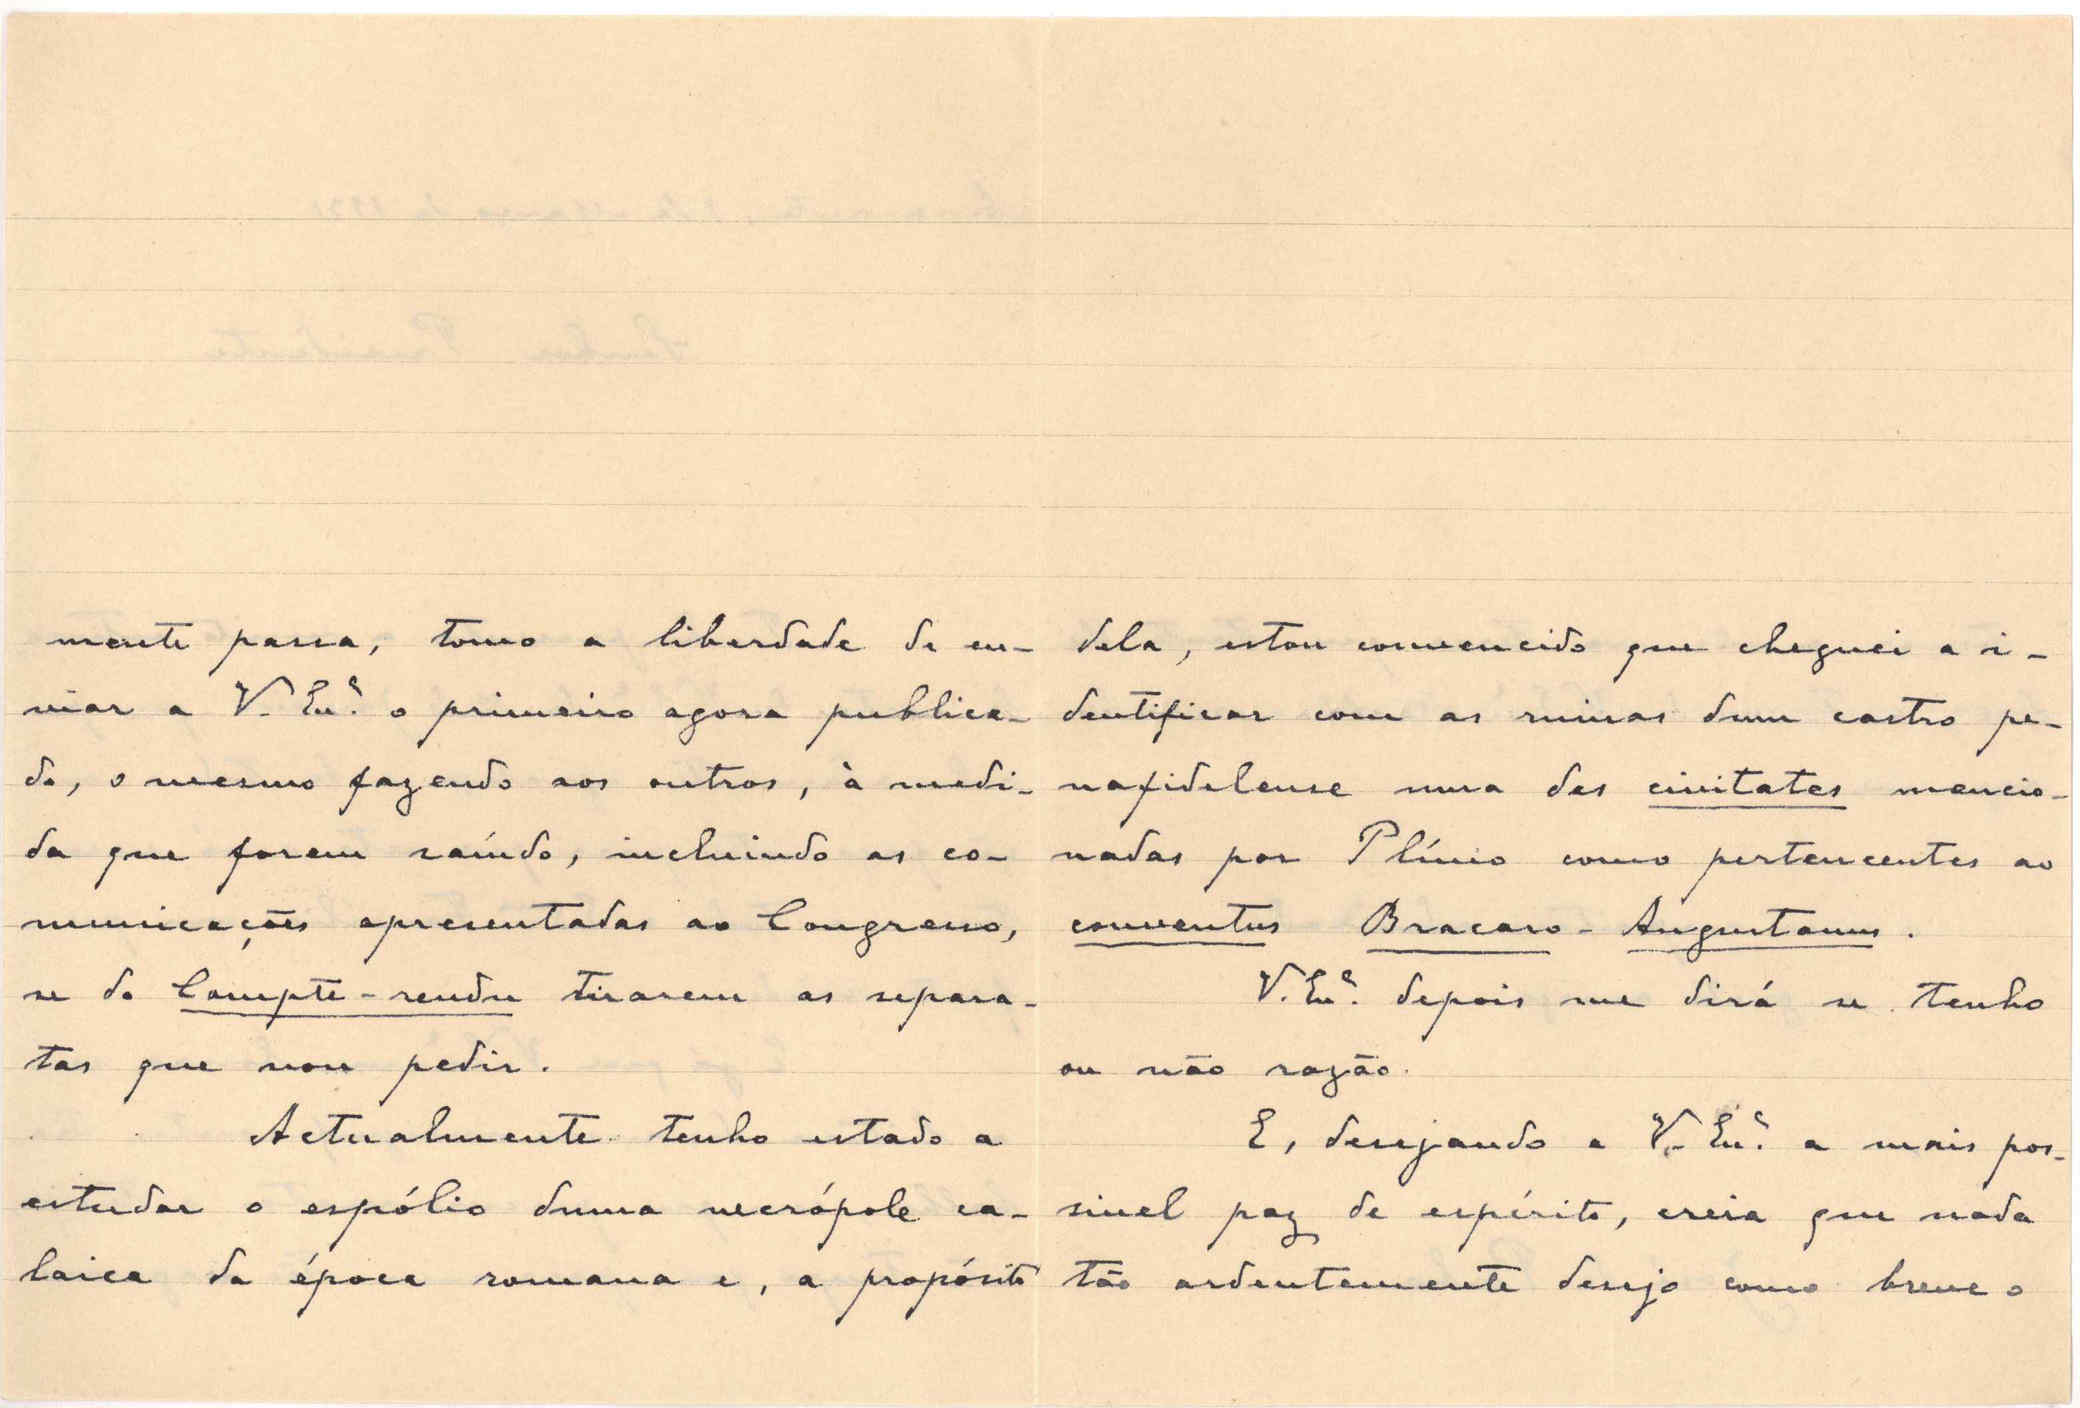 mente passa, tomo a liberdade de en-
viar a V. Ex.ª o primeiro agora publica-
do, o mesmo fazendo aos outros, à medi-
da que forem saíndo, incluindo as co-
municações apresentadas ao Congresso,
se do Compte-rendu tirarem as separa-
tas que vou pedir.
Actualmente tenho estado a
estudar o espólio duma necrópole ca-
laica da época romana e, a propósito
dela, estou convencido que cheguei a i-
dentificar com as ruinas dum castro pe-
nafidelense uma das civitates mencio-
nadas por Plínio como pertencentes ao
conventus Bracaro-Augustanus.
V. Ex.ª depois me dirá se tenho
ou não razão.
E, desejando a V. Ex.ª a mais pos-
sivel paz de espírito, creia que nada
tão ardentemente desejo como breve o